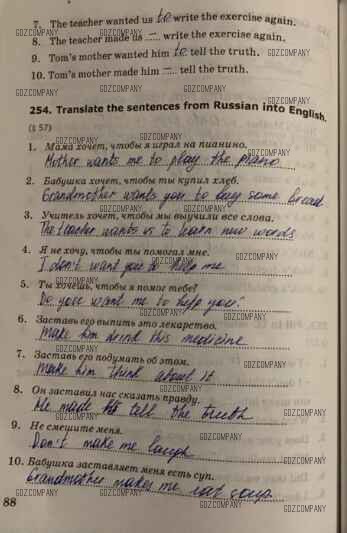 7. The teacher wanted us to write the exercise again.
8. The teacher made us – write the exercise again.
9. Tom's mother wanted him to tell the truth.
10. Tom's mother made him – tell the truth.
254. Translate the sentences from Russian into English.
(§ 57)
1. Мама хочет, чтобы я играл на пианино.
Mother wants me to play the piano
2. Бабушка хочет, чтобы ты купил хлеб.
Grandmother wants you to buy some bread
3. Учитель хочет, чтобы мы выучили все слова.
The teacher wants us to learn new words
4. Я не хочу, чтобы ты помогал мне.
I don't want you to help me
5. Ты хочешь, чтобы я помог тебе?
Do you want me to help you?
6. Заставь его выпить это лекарство.
Make him drink this medicine
7. Заставь его подумать об этом.
Make him think about it
8. Он заставил нас сказать правду.
He made us tell the truth
9. Не смешите меня.
Don't make me laugh
10. Бабушка заставляет меня есть суп.
Grandmother makes me eat soup
88
GDZCOMPANY